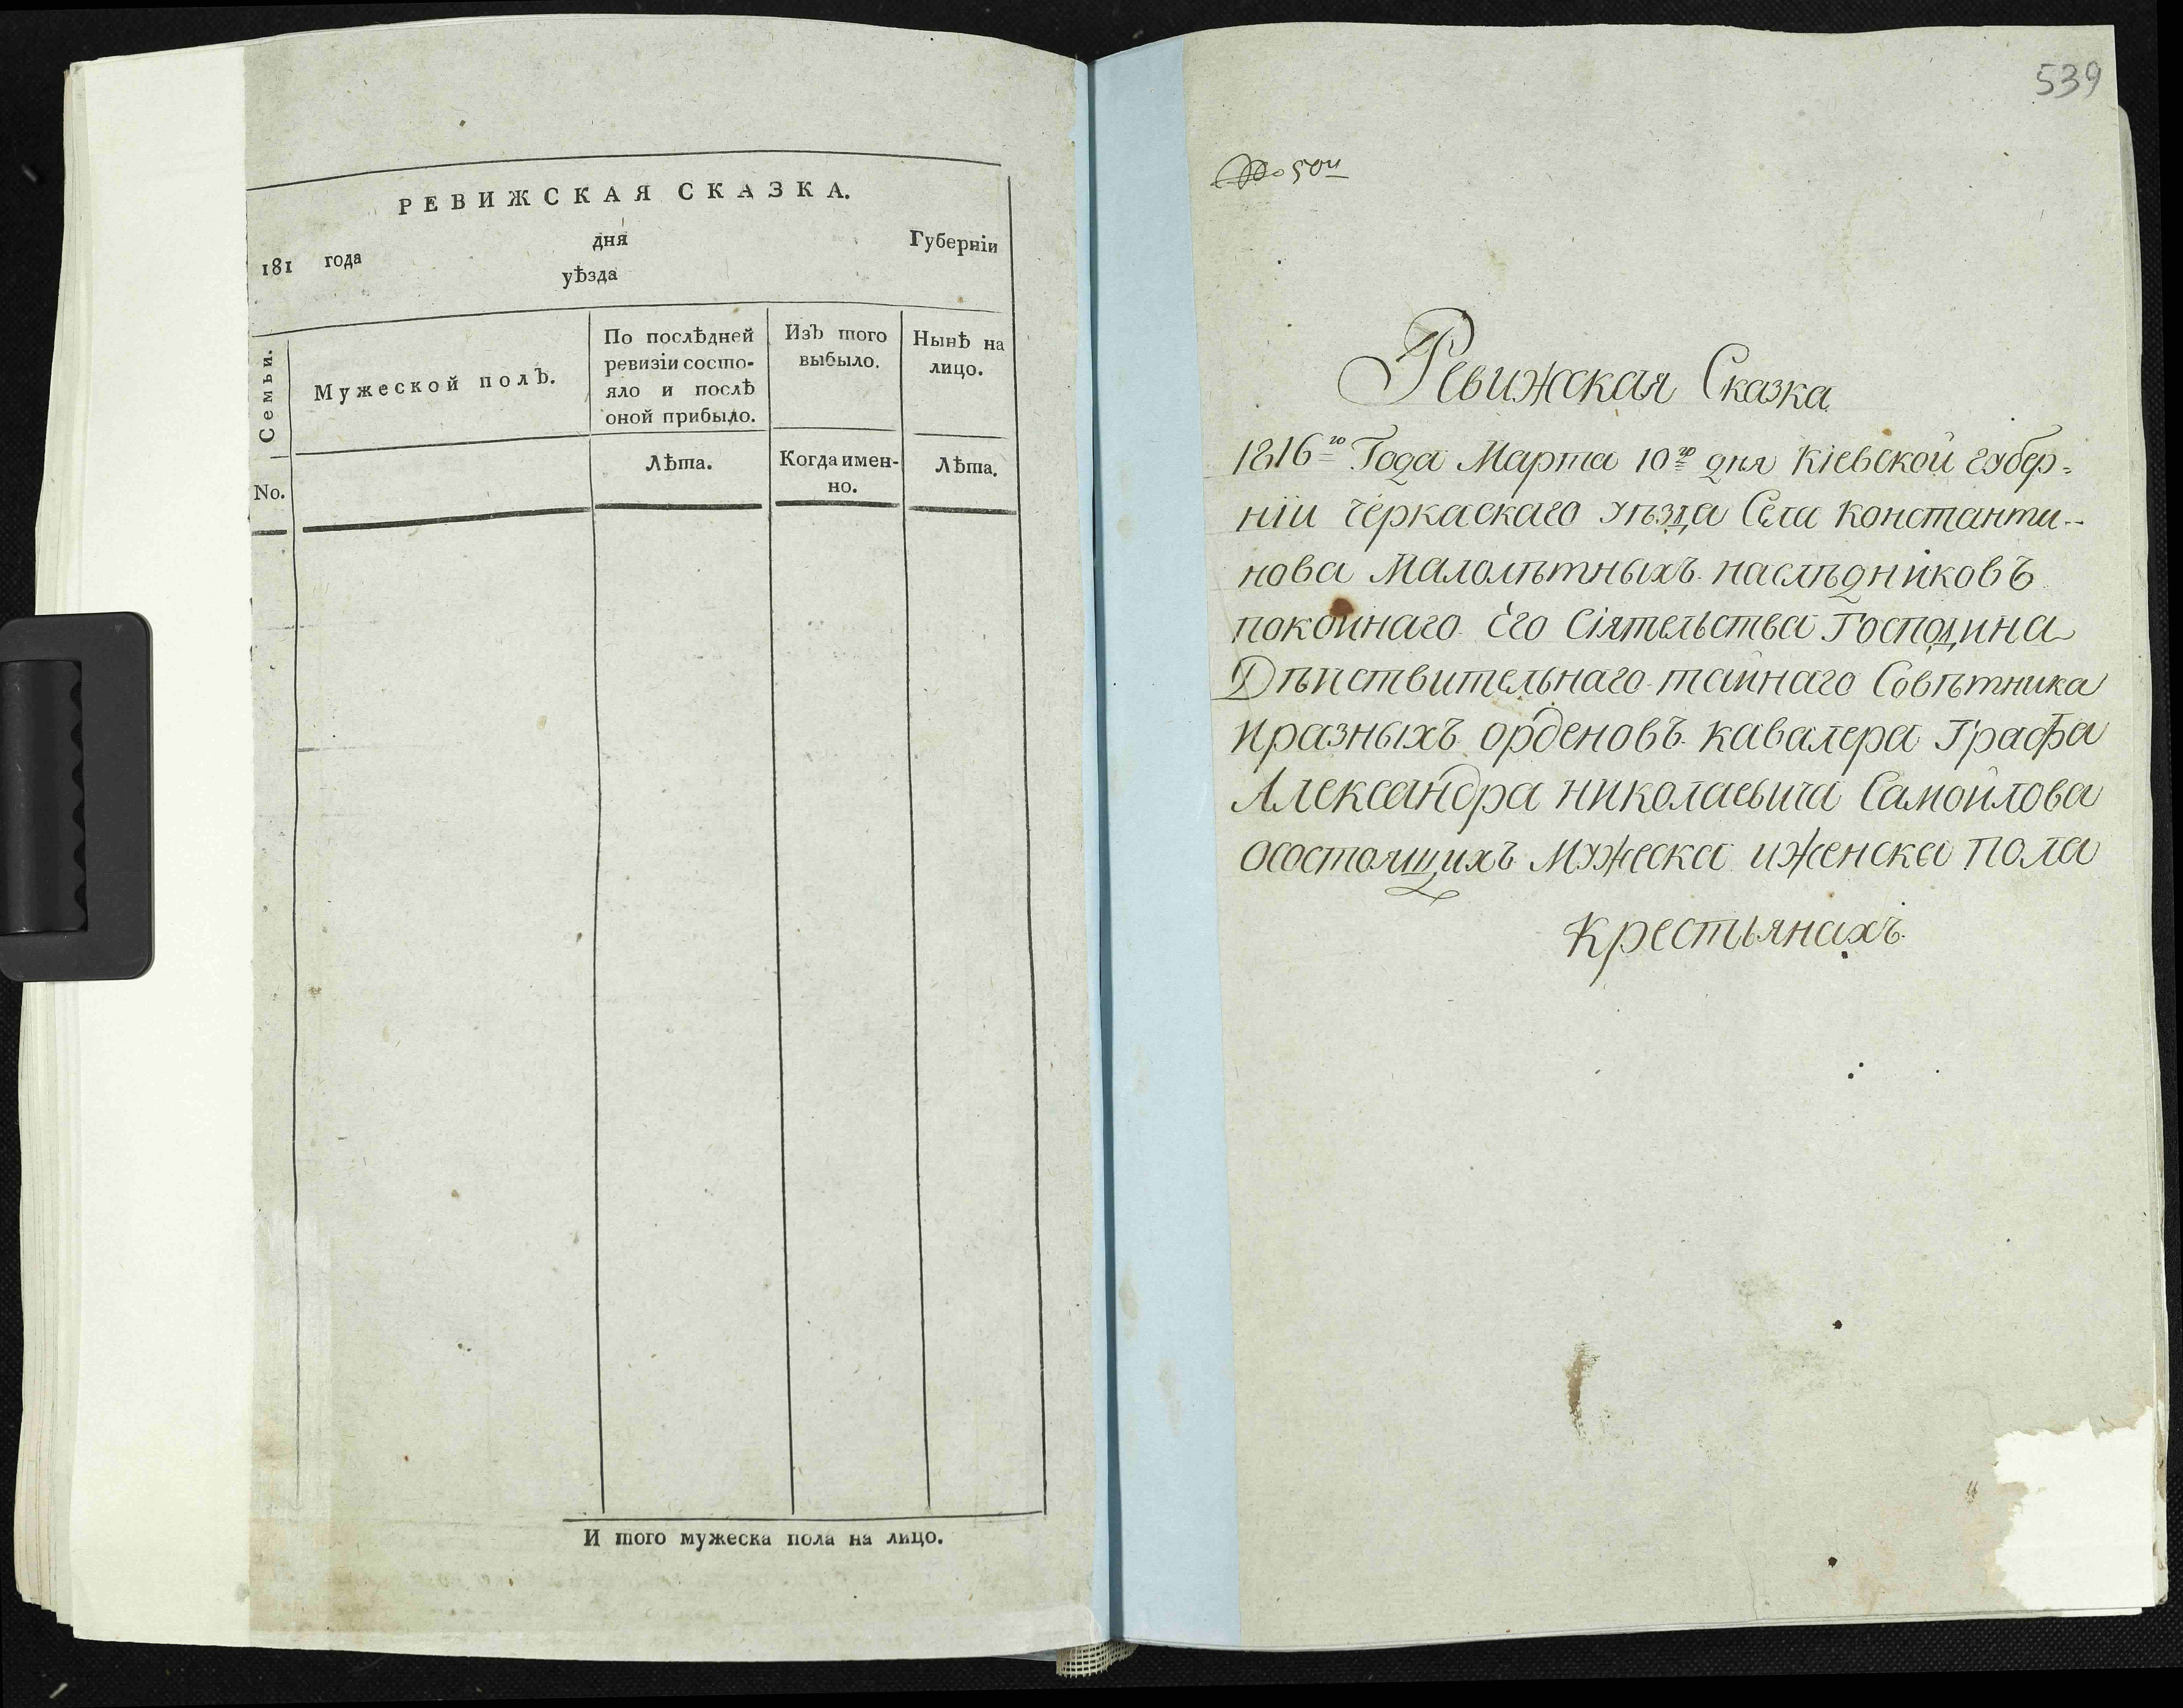 РЕВИЖСКАЯ СКАЗКА.
181 года дня Губерніи
уѣзда
Семьи.
Мужеской полъ.
По послѣдней
ревизіи состо-
яло и послѣ
оной прибыло.
Изъ того
выбыло.
Нынѣ на
лицо.
No.
Лѣта.
Когда имен-
но.
Лѣта.
И того мужеска пола на лицо.
539
Ревижская Сказка
1816го Года Марта 10го дня Кіевской губер=
ніи Черкаскаго уѣзда Села Константи--
нова Малолѣтныхъ наслѣдниковъ
покойнаго Его Сіятельства Господина
Дѣйствительнаго тайнаго Совѣтника
и разныхъ орденовъ кавалера Графа
Александра Николаевича Самойлова
о состоящихъ Мужеска и женска пола
крестьянахъ.